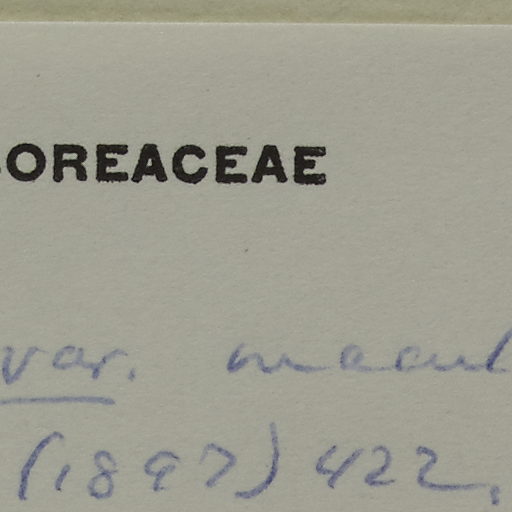 OREACEAE
var.
(1897) 422.